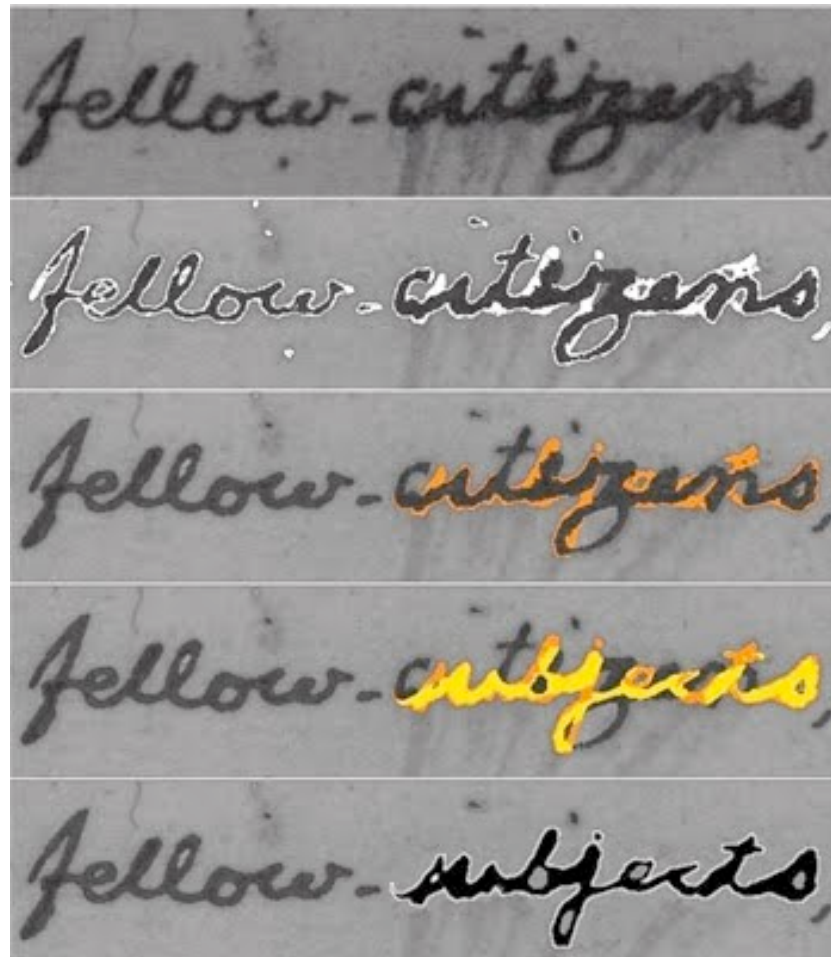 fellow-citizens,
fellow-citizens,
fellow-citizens,
fellow-subjects,
fellow-subjects,